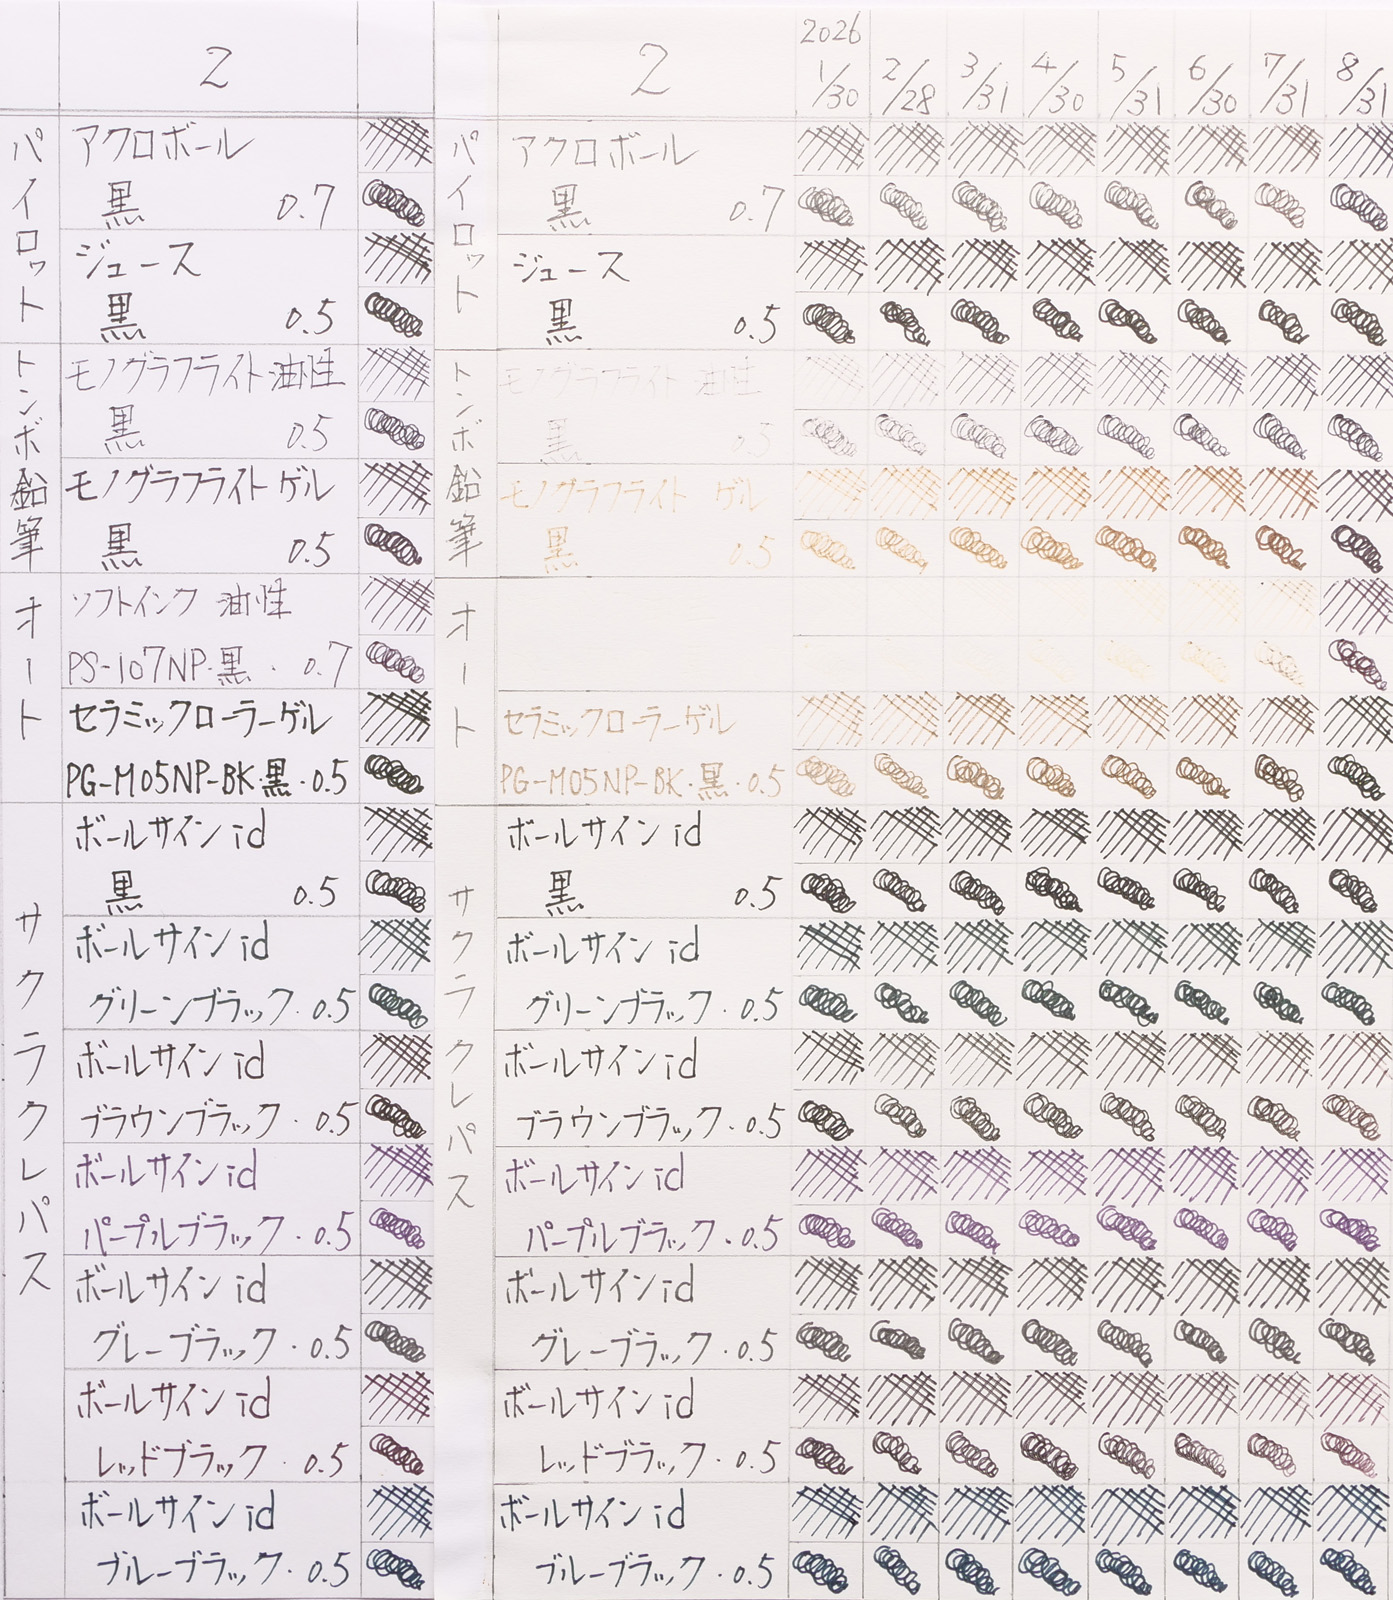 2
パイロット
アクロボール
黒 0.7
ジュース
黒 0.5
トンボ鉛筆
モノグラフライト油性
黒 0.5
モノグラフライト ゲル
黒 0.5
オート
ソフトインク 油性
PS-107NP・黒・0.7
セラミックローラーゲル
PG-M05NP-BK・黒・0.5
サクラクレパス
ボールサイン id
黒 0.5
ボールサイン id
グリーンブラック・0.5
ボールサイン id
ブラウンブラック・0.5
ボールサイン id
パープルブラック・0.5
ボールサイン id
グレーブラック・0.5
ボールサイン id
レッドブラック・0.5
ボールサイン id
ブルーブラック・0.5
2
2026
1/30 2/28 3/31 4/30 5/31 6/30 7/31 8/31
パイロット
アクロボール
黒 0.7
ジュース
黒 0.5
トンボ鉛筆
モノグラフライト油性
黒 0.5
モノグラフライト ゲル
黒 0.5
オート
セラミックローラーゲル
PG-M05NP-BK・黒・0.5
サクラクレパス
ボールサイン id
黒 0.5
ボールサイン id
グリーンブラック・0.5
ボールサイン id
ブラウンブラック・0.5
ボールサイン id
パープルブラック・0.5
ボールサイン id
グレーブラック・0.5
ボールサイン id
レッドブラック・0.5
ボールサイン id
ブルーブラック・0.5